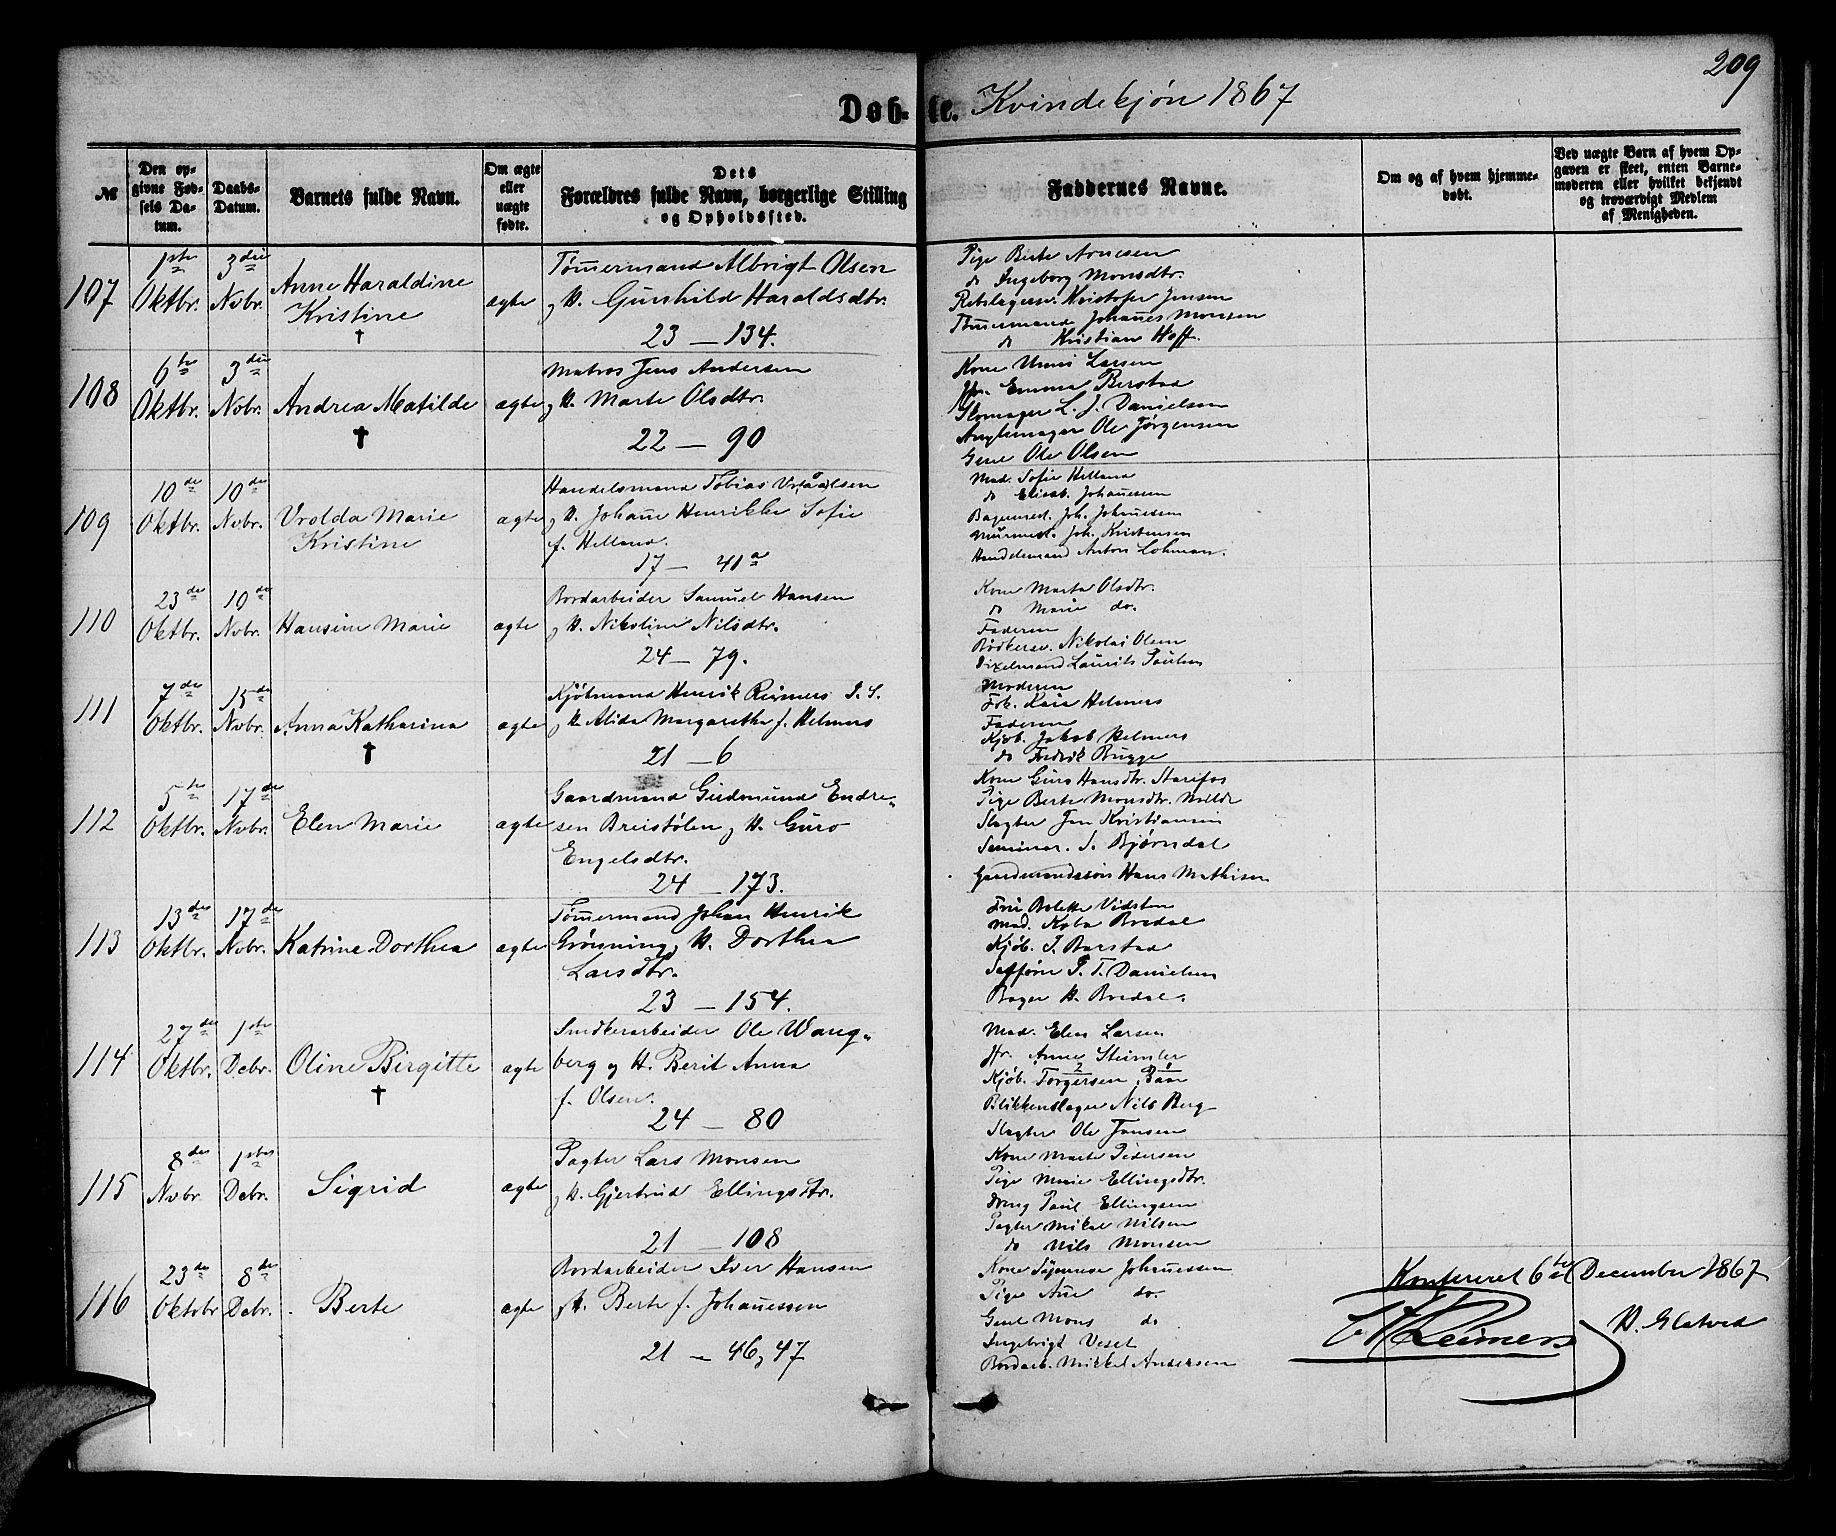 209
Døb-te. Kvindekjøn 1867
№
Den op-
givne Fød-
sels Da-
tum.
Daabs-
Datum.
Barnets fulde Navn.
Om ægte
eller
uægte
fødte.
Dets
Forældres fulde Navn, borgerlige Stilling
og Opholdssted.
Faddernes Navne.
Om og af hvem hjemme-
døbt.
Ved uægte Barn af hvem Op-
gaven er skeet, enten Barne-
moderen eller hvilket bekjendt
og troværdigt Medlem
af Menigheden.
107
1ste
Oktbr.
3die
Nvbr.
Anne Haraldine
Kristine
†
ægte
Tømermand Albrigt Olsen
og H. Gunhild Haraldsdtr.
23 — 134.
Pige Berte Arnesen
do Ingeborg Monsdtr.
Rebslagersv. Kristofer Jensen
Tømermand Johanes Monsen
do Kristian Hoff.
108
6te
Oktbr.
3die
Nvbr.
Andrea Matilde
†
ægte
Matros Jens Andersen
og H. Marte Olsdtr.
22 — 90
Kone Unni Larsen
Jfr. Emma Berstad
Skomager L. J. Danielsen
Ole Jørgensen
Gent Ole Olsen
109
10de
Oktbr.
10de
Nvbr.
Vrolda Marie
Kristine
ægte
Handelsmand Tobias
og H. Johane Henrikke Sofie
f. Helland.
17 — 41a
Mad. Sofie Helland
do Elisab. Johanesen
Bagermest. Joh. Johanesen
Murmest. Joh. Kristensen
Handelsmand Anton Lohman.
110
23de
Oktbr.
10de
Nvbr.
Hansine Marie
ægte
Bordarbeider Samuel Hansen
og H. Nikoline Nilsdtr.
24 — 79.
Kone Marta Olsdtr.
do Marie do.
Faderen
Bødkersv. Nikolai Olsen
Laurits Paulsen
111
7de
Oktbr.
15de
Nvbr.
Anna Katharina
†
ægte
Kjøbmand Henrik Reimers P. S.
og H. Alida Margarethe f. Helmers
21 — 6
Moderen
Frk. Kaia Helmers
Faderen
Kjøb. Jakob Helmers
do Fredrik Brugge
112
5te
Oktbr.
17de
Nvbr.
Elen Marie
ægte
Gaardmand Gudmund Endre-
sen Breistølen og H. Guro
Engelsdtr.
24 — 173.
Kone Guro Hansdtr. Starefos
Pige Berte Monsdtr. Milde
Slagter Jan Kristiansen
Seminar. S. Bjørndal
Gaardmandssøn Hans Mathisen
113
13de
Oktbr.
17de
Nvbr.
Katrine Dorthea
ægte
Tømermand Johan Henrik
Grønning og H. Dorthea
Larsdtr.
23 — 154.
Fru Bolette Vidsten
Mad. Bredal
Kjøb. I. Barstad
P. T. Danielsen
Bager H. Bredal.
114
27de
Oktbr.
1ste
Debr.
Oline Birgitte
†
ægte
Smedkerarbeider Ole Wang-
berg og H. Berit Anna
f. Olsen.
24 — 80
Mad. Elen Larsen
Jfr. Anne Steimler
Kjøb. Torgersen
Blikkenslager Nils Berg
Slagter Ole Jansen
115
8de
Nvbr.
1ste
Debr.
Sigrid
ægte
Pagter Lars Monsen
og H. Gjertrud Ellingsdtr.
21 — 108
Kone Marte Pedersen
Pige Marie Ellingsdtr.
Dreng Paul Ellingsen
Pagter Mikal Nilsen
do Nils Monsen
116
23de
Oktobr
8de
Debr.
Berte
ægte
Bordarbeider Iver Hansen
og H. Berte f. Johanessen
21 — 46, 47
Kone Johanessen
Pige Ane do.
Gent Mons do
Ingebrigt Veset
Bordarb. Mikkel Andersen
Konfereret 6te December 1867
Reimers